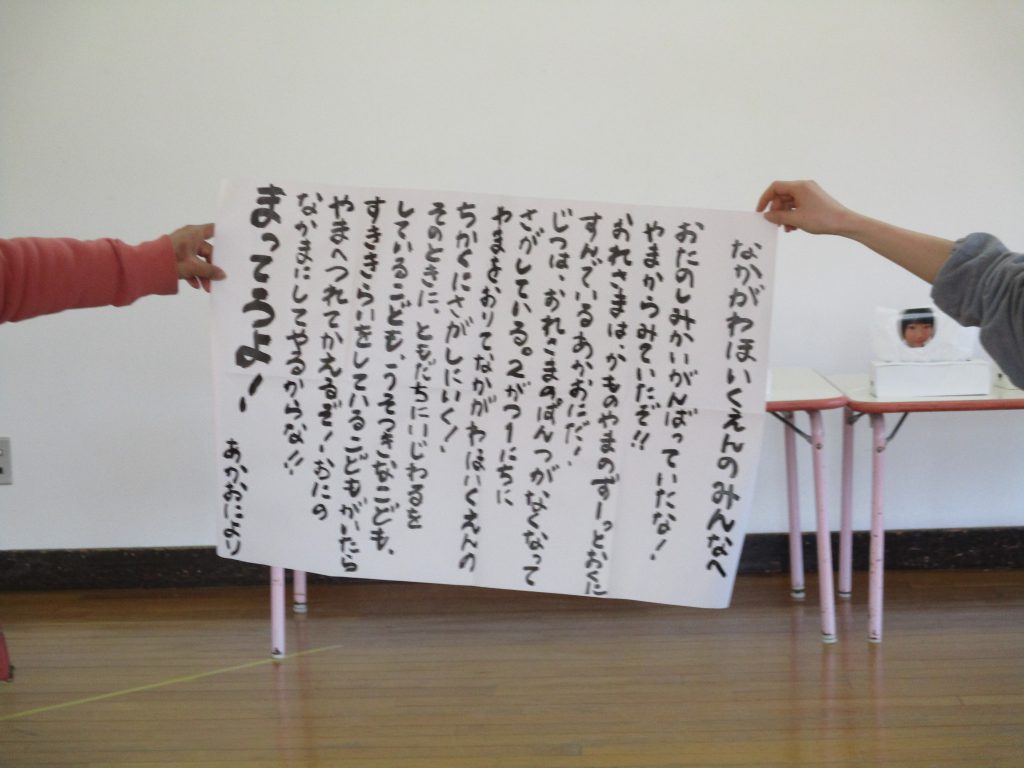 なかがわほいくえんのみんなへ
おたのしみかいがんばっていたな！
やまからみていたぞ!!
おれさまは、かものやまのずーっとおくに
すんでいるあかおにだ！
じつは、おれさまのぱんつがなくなって
さがしている。2がつ1にちに
やまを、おりてなかがわほいくえんの
ちかくにさがしにいく！
そのときに、ともだちにいじわるを
しているこども、うそつきなこども、
すききらいをしているこどもがいたら
やまへつれてかえるぞ！おにの
なかまにしてやるからな!!
まってろよー
あかおによより